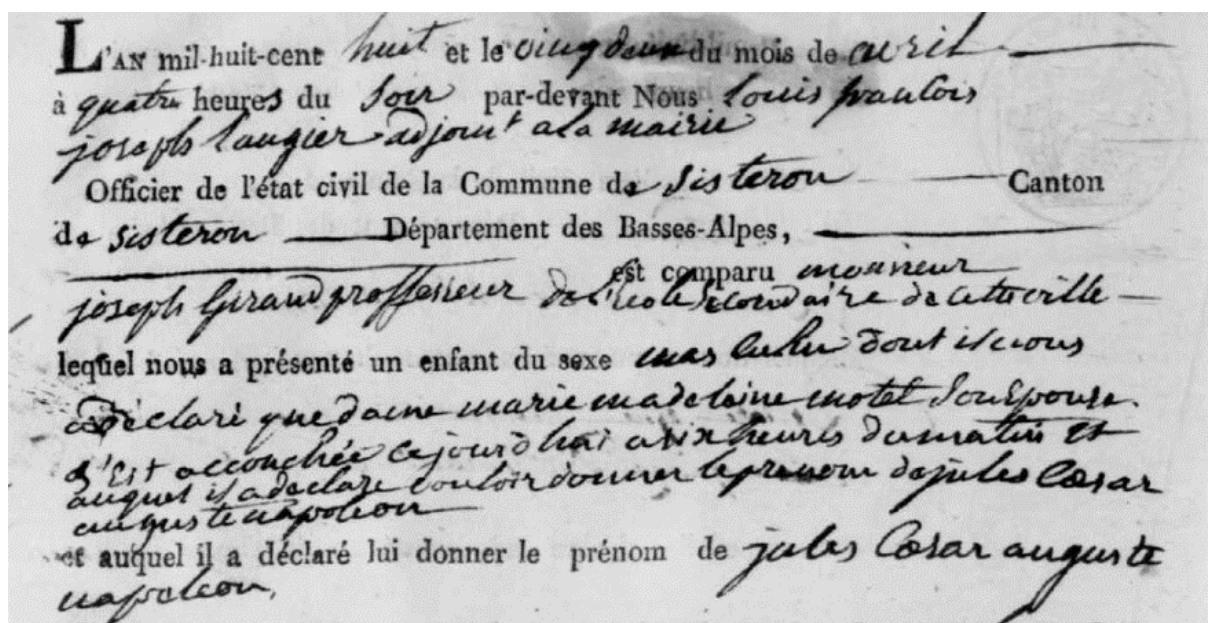 L'AN mil-huit-cent huit et le vingdeux du mois de avril
à quatre heures du Soir par-devant Nous Louis francois
joseph Laugier adjoint a la mairie
Officier de l'état civil de la Commune de Sisteron Canton
de Sisteron Département des Basses-Alpes,
est comparu monsieur
joseph Giraud proffesseur de l'ecole Secondaire de cette ville
lequel nous a présenté un enfant du sexe masculin dont il nous
a Déclaré que dame marie madeleine motet Son Epouse
S'Est accouchée cejourdhui a six heures du matin Et
auquel il a declare vouloir donner le prenom de jules Cæsar
auguste napoleon
et auquel il a déclaré lui donner le prénom de jules Cæsar auguste
napoleon,